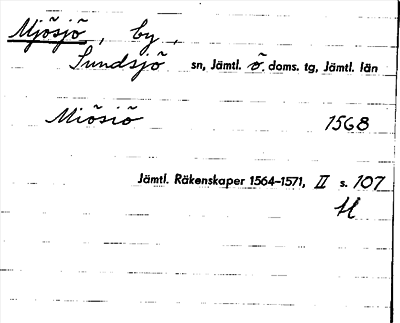 Mjösjö, by,
Sundsjö sn, Jämtl. ö. doms. tg, Jämtl. län
Miösiö 1568
Jämtl. Räkenskaper 1564-1571, II s. 107